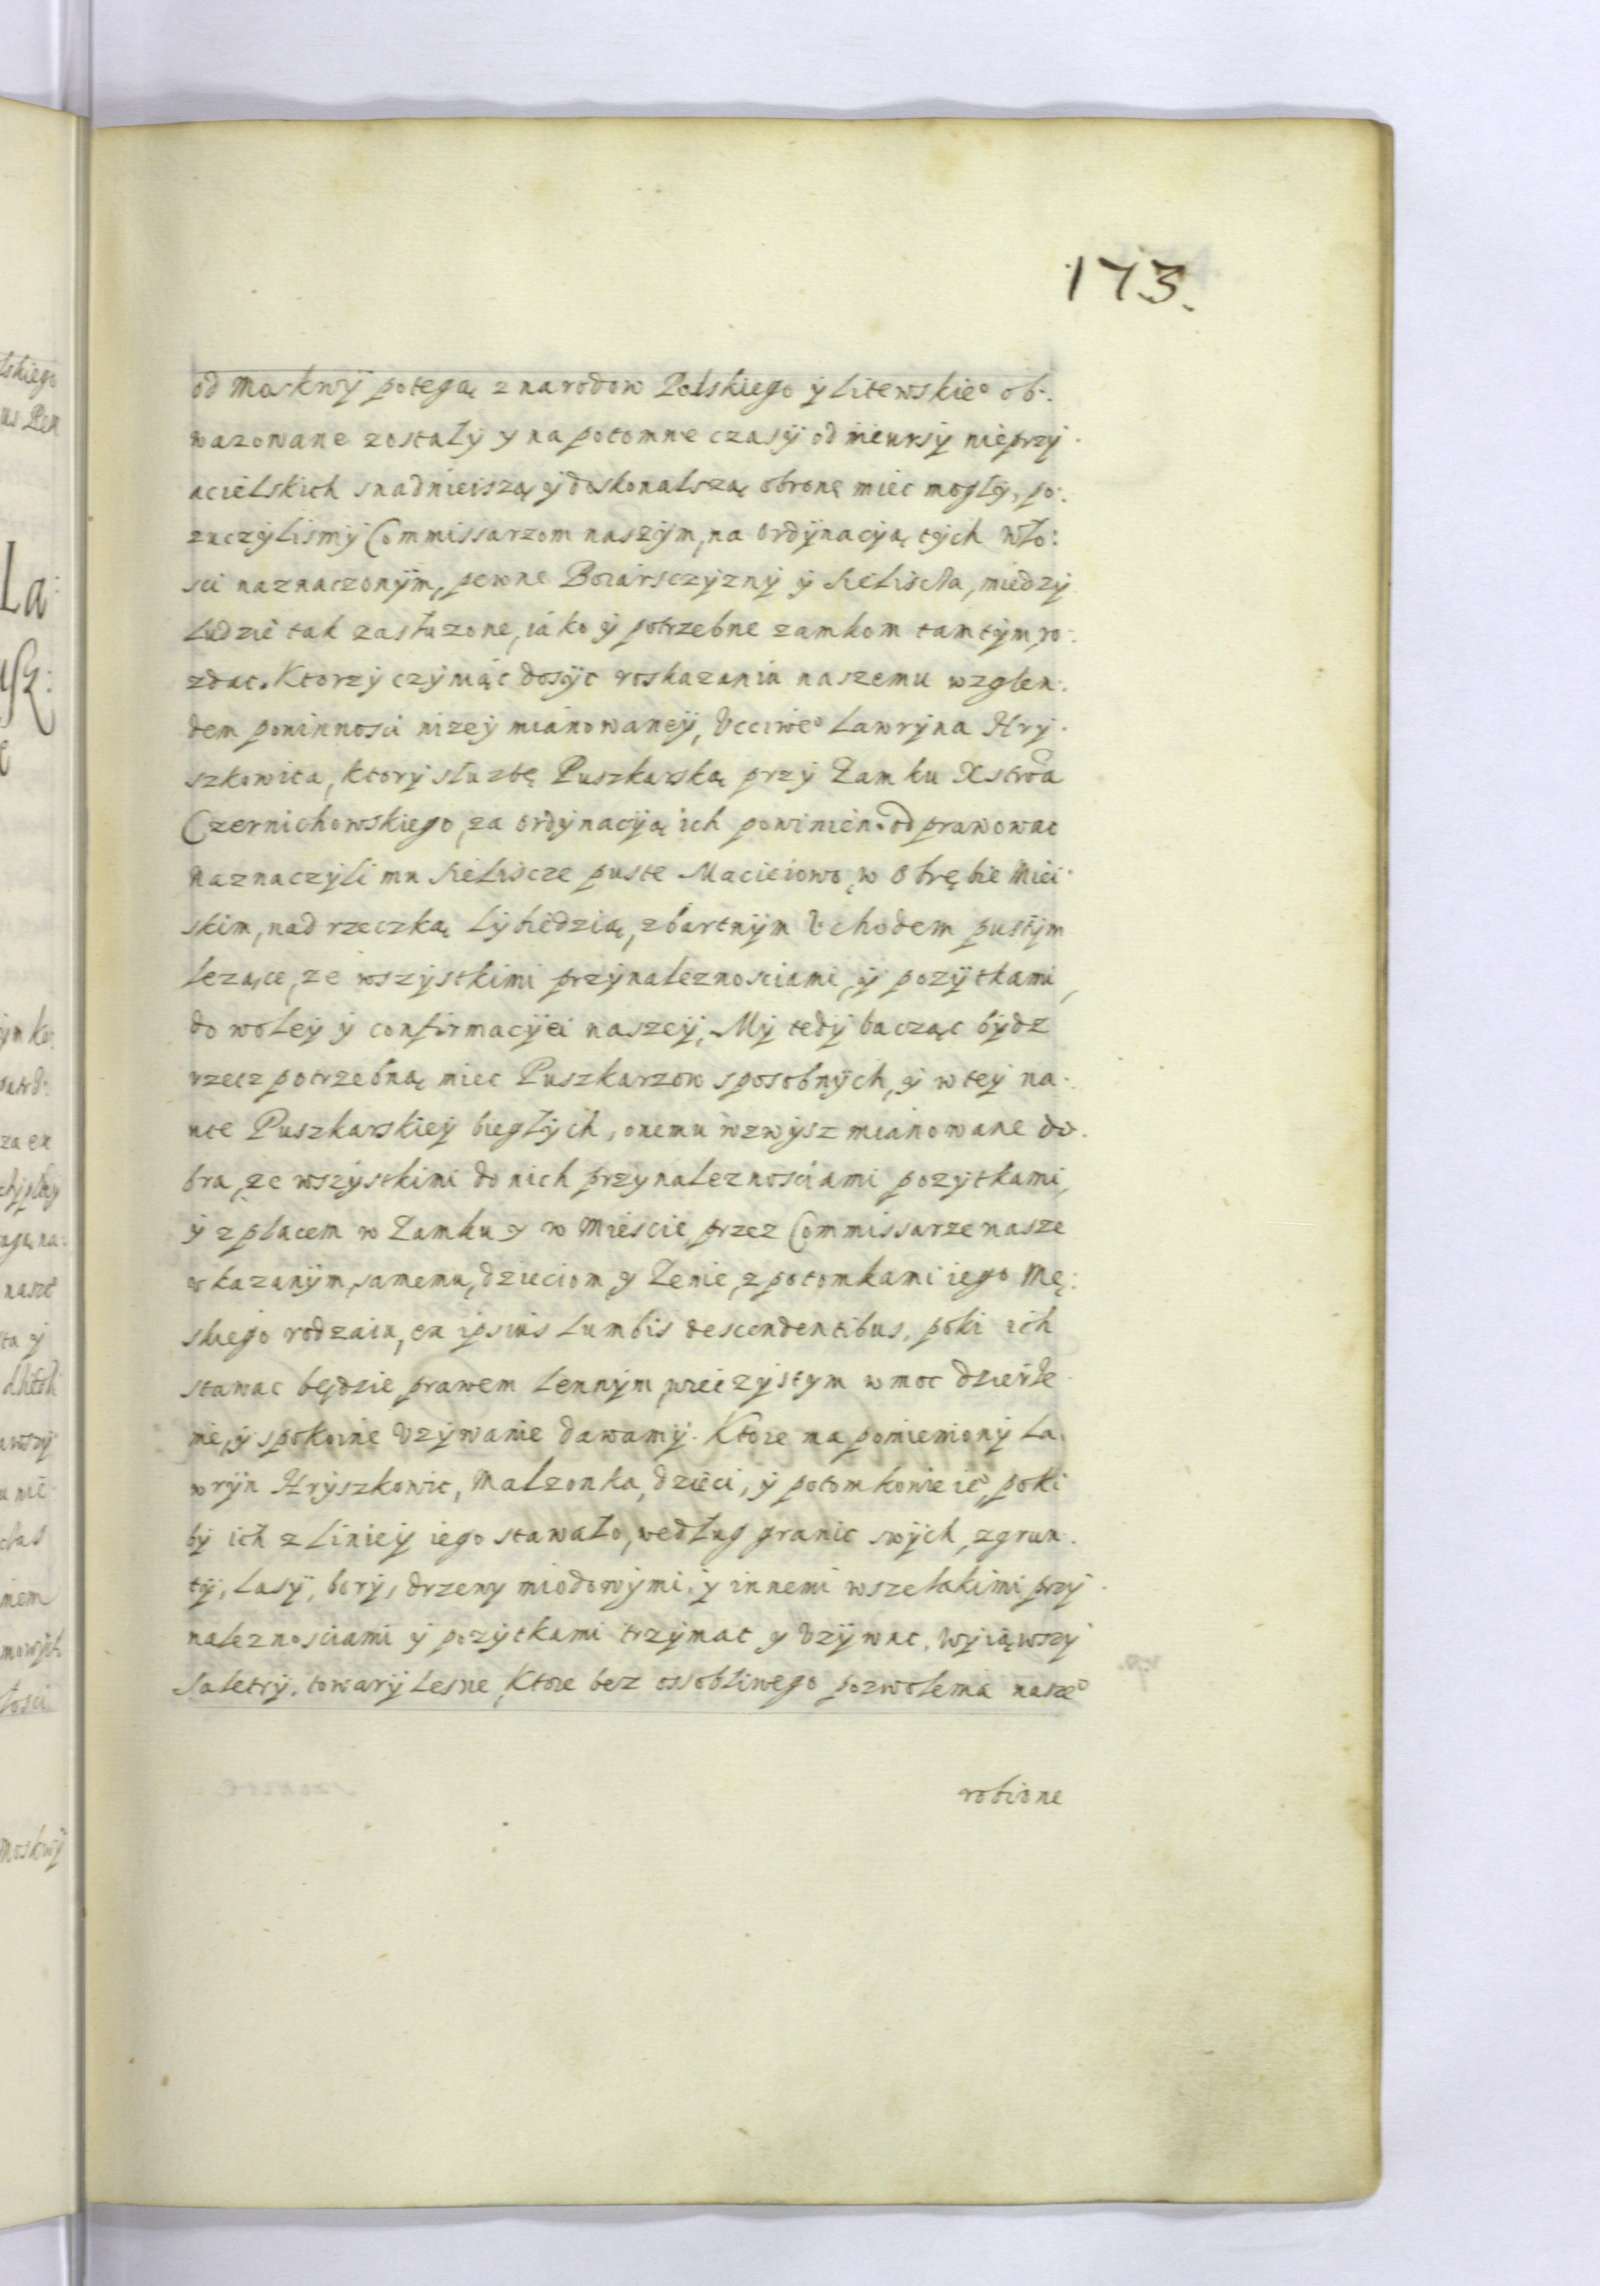 173.
od Moskwÿ potegą z narodow Polskiego ÿ Litewskieº ob:
warowane zostałÿ y na potomne czasÿ od incursÿ nieprzÿ
acielskich snadnieiszą ÿ doskonalszą obronę miec mogłÿ, po:
zuczÿlismÿ Commissarzom naszÿm, na ordÿnacÿą tÿch wło:
sci naznaczonÿm, pewne Boiarsczÿznÿ ÿ Sieliscza, miedzÿ
Ludzie tak zasłuzone, iako ÿ potrzebne zamkom tamtÿm, ro:
zdac. Ktorzÿ czÿniąc dosÿc roskazaniu naszemu wzglen:
dem powinnosci nizeÿ mianowaneÿ, Vcciweº Lawrÿna Hrÿ:
szkowica, ktorÿ słuzbę Puszkarską przÿ Zamku Xstwa
Czernichowskiego, za ordÿnacÿą ich powinien odprawowac
Naznaczÿli mu Sielisce puste Macieiowo, w Obrębie Miei:
skim, nad rzeczką Lÿbiedzią, z bartnÿm Vchodem pustÿm
lezące, ze wszÿstkimi przÿnaleznosciami, ÿ pozÿtkami,
do woleÿ ÿ confirmacÿei naszeÿ, Mÿ tedÿ bacząc bÿdz
rzecz potrzebną miec Puszkarzow sposobnÿch, ÿ w teÿ na:
uce Puszkarskieÿ biegłÿch, onemu wzwÿsz mianowane do:
bra, ze wszÿstkimi do nich przÿnaleznosciami pozÿtkami,
ÿ z placem w Zamku y w Miescie, przez Commissarze nasze
vkazanÿm, samemu, dzieciom y Zenie, z potomkami iego Mę:
skiego rodzaiu, ex ipsius Lumbis descendentibus, poki ich
stawac będzie prawem Lennÿm, wieczÿstym w moc dzierze
nie, ÿ spokoine Vzÿwanie dawamÿ. Ktore ma pomienionÿ La:
wrÿn Hrÿszkowic, Malzonka, dzieci, ÿ potomkowie ieº, poki
bÿ ich z Linieÿ iego stawało, według granic swÿch, z grun:
tÿ, Lasÿ, borÿ, drzewy miodowÿmi, ÿ innemi wszelakimi przÿ:
naleznosciami ÿ pozÿtkami trzÿmac y Vzÿwac, wÿiąwszÿ
Saletrÿ, towarÿ Lesne, Ktore bez ossobliwego pozwolenia naszeº
robione